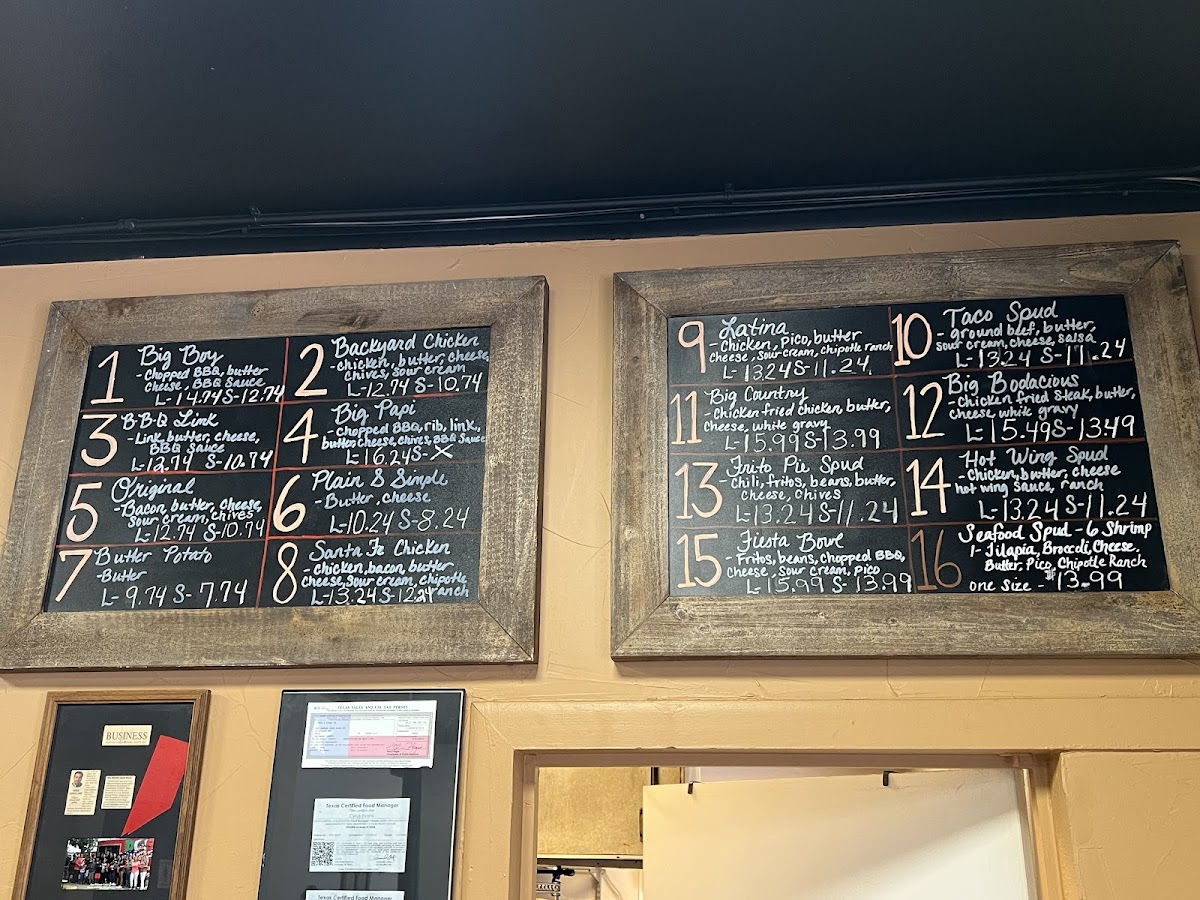 1 Big Boy
- Chopped BBQ, butter
cheese, BBQ Sauce
L-14.74 S-12.74
2 Backyard Chicken
- chicken, butter, cheese,
chives, sour cream
L-12.74 S-10.74
3 B-B-Q Link
- Link, butter, cheese,
BBQ Sauce
L-12.74 S-10.74
4 Big Papi
- Chopped BBQ, rib, link,
butter, cheese, chives, BBQ Sauce
L-16.24 S-X
5 Original
- Bacon, butter, cheese,
sour cream, chives
L-12.74 S-10.74
6 Plain & Simple
- Butter, cheese
L-10.24 S-8.24
7 Butter Potato
- Butter
L-9.74 S-7.74
8 Santa Fe Chicken
- chicken, bacon, butter
cheese, sour cream, chipotle
L-13.24 S-12.24 ranch
9 Latina
- Chicken, Pico, butter
cheese, sour cream, chipotle ranch
L-13.24 S-11.24
10 Taco Spud
- ground beef, butter,
sour cream, cheese, salsa
L-13.24 S-11.24
11 Big Country
- Chicken fried chicken, butter,
cheese, white gravy
L-15.99 S-13.99
12 Big Bodacious
- Chicken fried steak, butter,
cheese, white gravy
L-15.49 S-13.49
13 Frito Pie Spud
- Chili, fritos, beans, butter,
cheese, chives
L-13.24 S-11.24
14 Hot Wing Spud
- Chicken, butter, cheese
hot wing sauce, ranch
L-13.24 S-11.24
15 Fiesta Bowl
- Fritos, beans, chopped BBQ,
cheese, sour cream, pico
L-15.99 S-13.99
16 Seafood Spud - 6 Shrimp
1- Tilapia, Broccoli, Cheese,
Butter, Pico, Chipotle Ranch
one size - $13.99
BUSINESS
TEXAS SALES AND USE TAX PERMIT
Texas Certified Food Manager
Texas Certified Food Manager